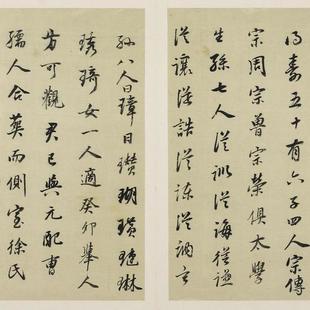 得壽五十有六子四人宗傳
宗周宗魯宗榮俱太學
生孫七人從訓從誨從
從讓從誥從諫從玄
孫八人曰璋曰瓚瑚璜琳
琇琦女一人適癸卯舉人
方可觀君已與元配曹
孺人合葬而側室徐氏